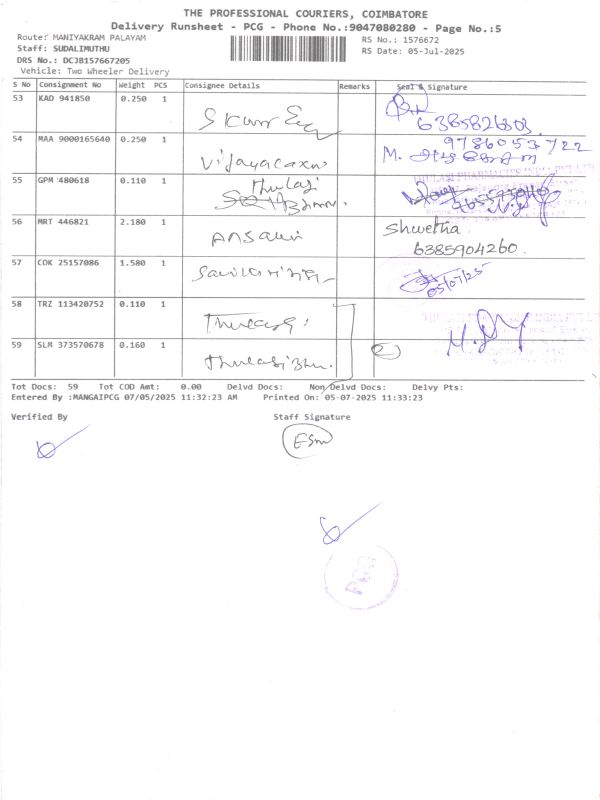 THE PROFESSIONAL COURIERS, COIMBATORE
Delivery Runsheet - PCG - Phone No.:9047080280 - Page No.:5
Route: MANIYAKRAM PALAYAM
RS No.: 1576672
Staff: SUDALIMUTHU
RS Date: 05-Jul-2025
DRS No.: DCJB157667205
Vehicle: Two Wheeler Delivery
S No Consignment No Weight PCS Consignee Details Remarks Seal & Signature
53 KAD 941850 0.250 1
6385826803
54 MAA 9000165640 0.250 1 Vijayalaxmi 9786053722
M.
55 GPM 480618 0.110 1 Thulasi
56 MRT 446821 2.180 1 Ansari Shwetha
6385904260
57 COK 25157086 1.580 1 05/07/25
58 TRZ 113420752 0.110 1
59 SLM 373570678 0.160 1 2
Tot Docs: 59 Tot COD Amt: 0.00 Delvd Docs: Non Delvd Docs: Delvy Pts:
Entered By :MANGAIPCG 07/05/2025 11:32:23 AM Printed On: 05-07-2025 11:33:23
Verified By Staff Signature
ESM
PCG